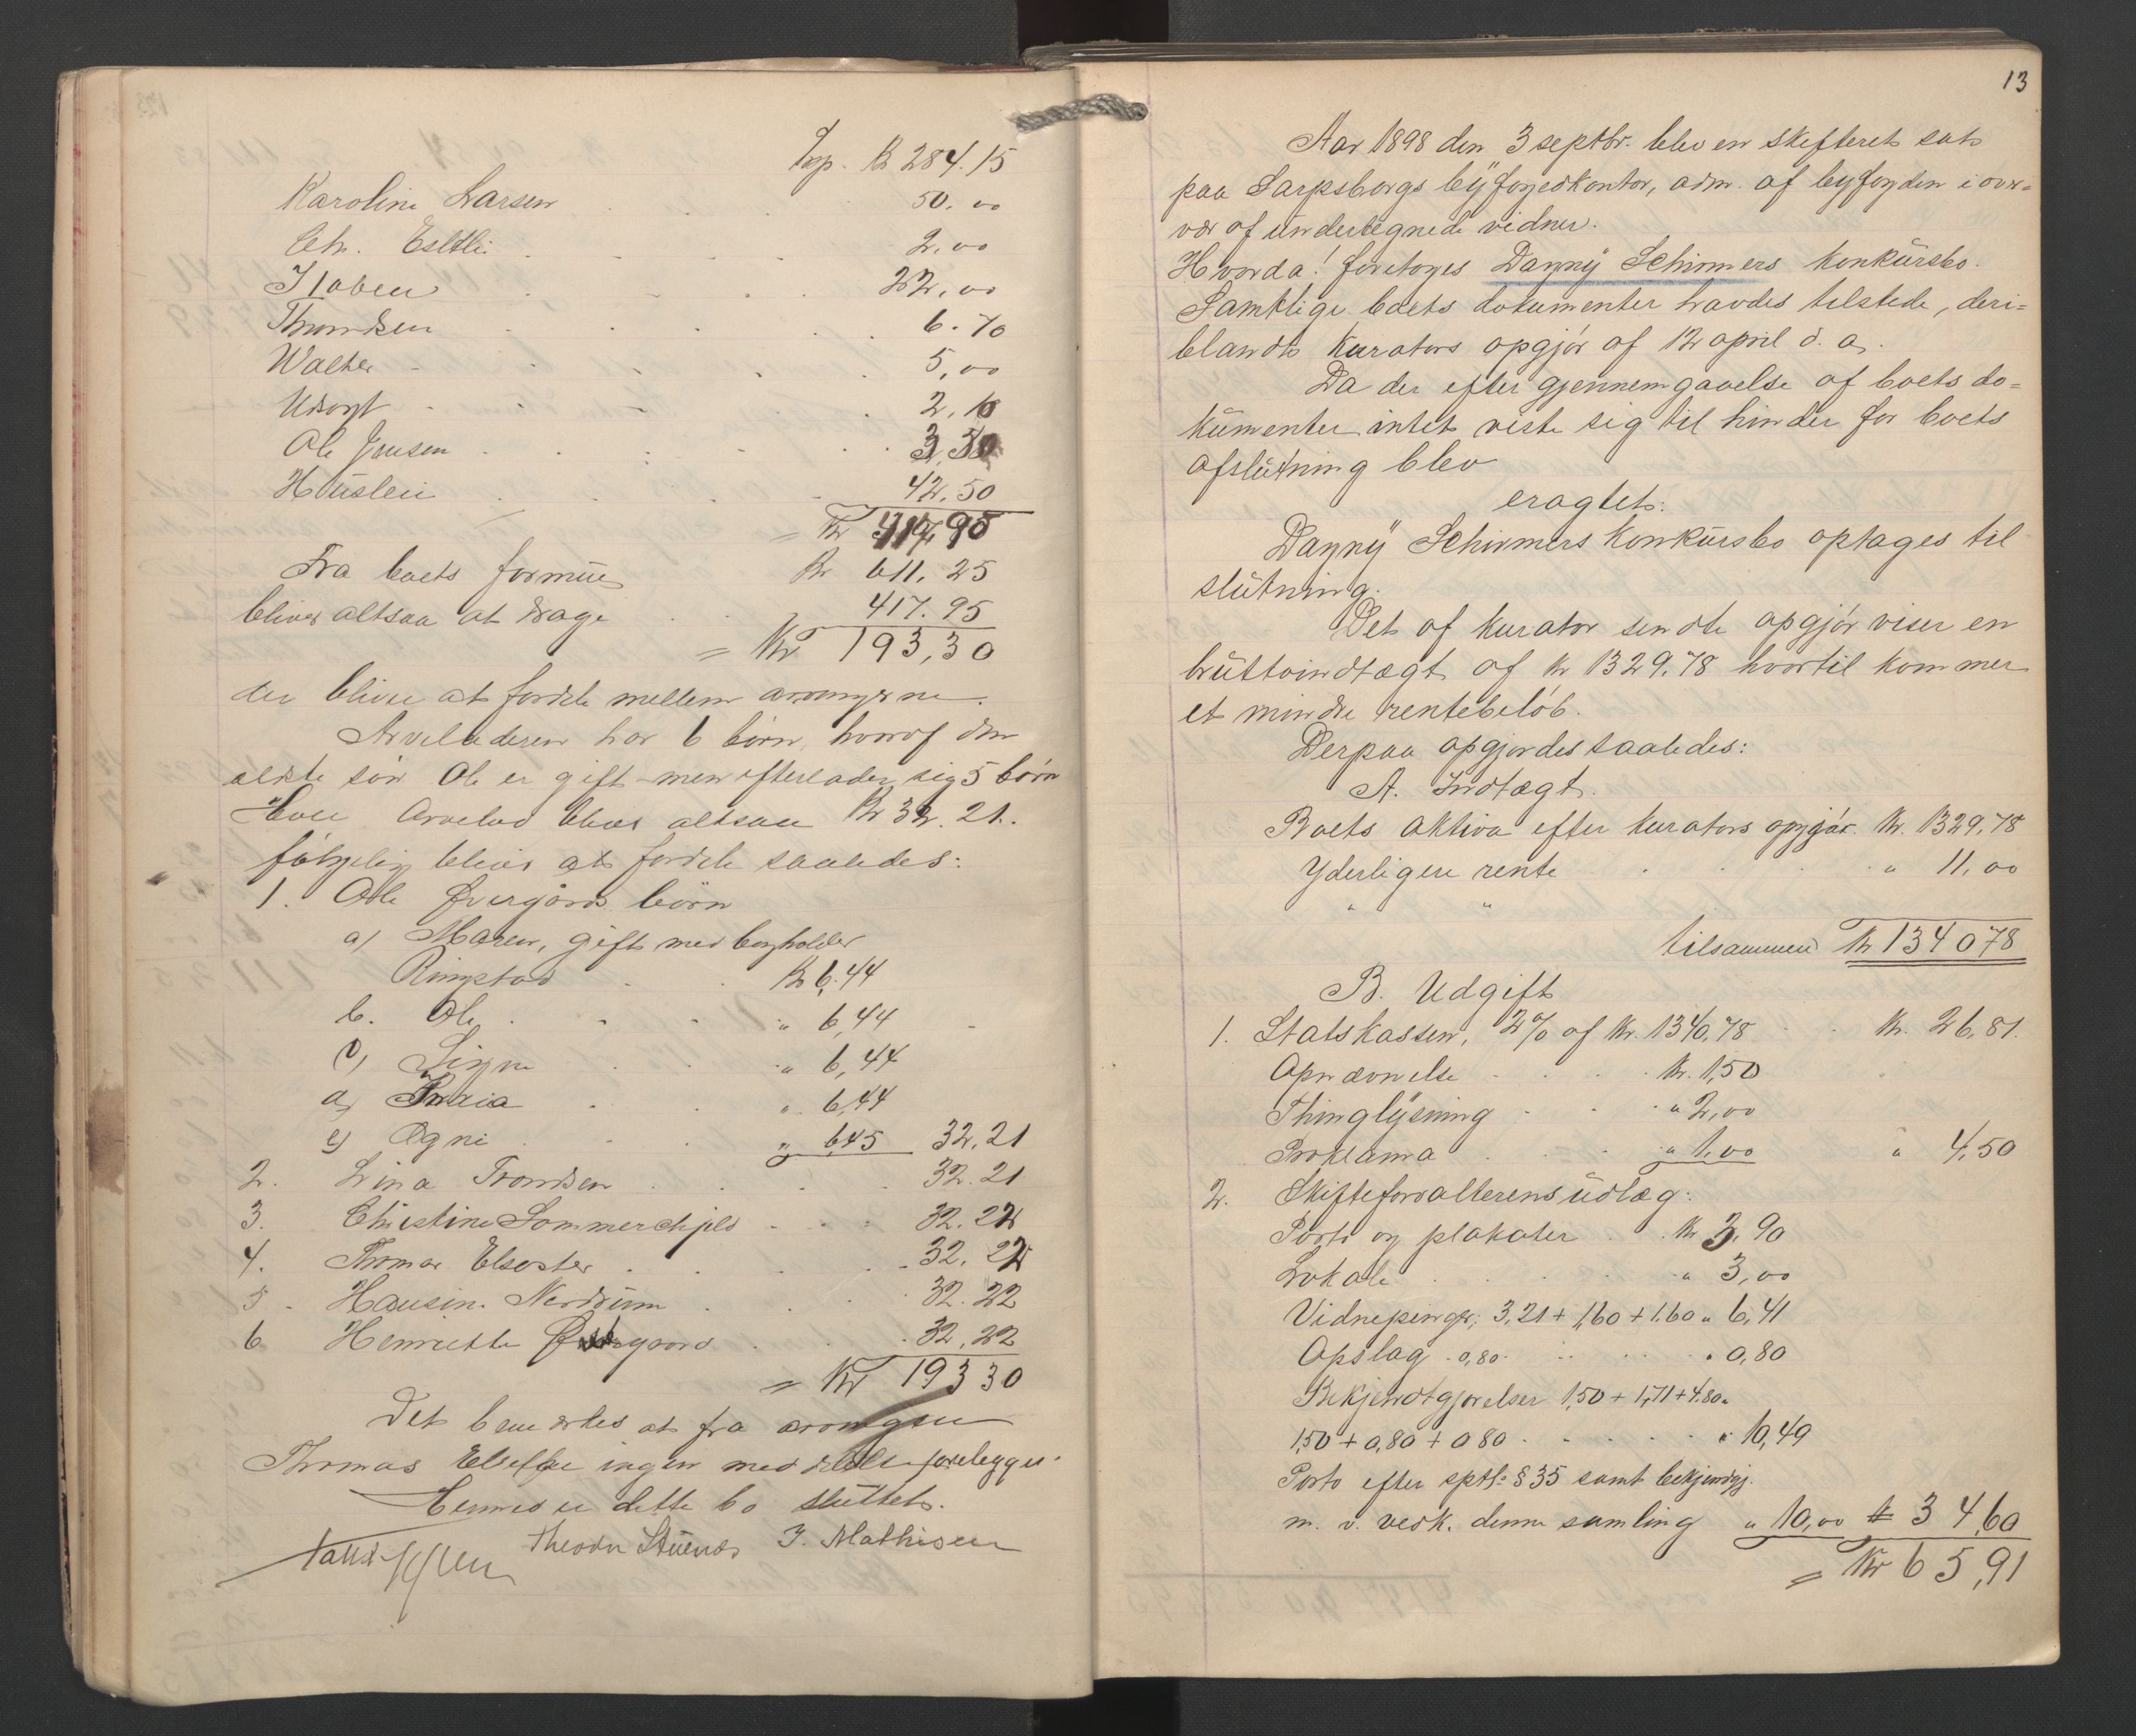 Trp. Kr 284.15
Karoline Larsen 50.00
Chr. Esltli 2,00
22,00
Thomsen 6.70
Walther 5,00
2,10
Ole Jensen 3,50
Husleie 42.50
= Kr 417,95
Fra boets formue Kr 611,25
bliver altsaa at drage 417.95
= Kr 193,30
der bliver at fordele mellem arvingerne.
Arveladeren har 6 børn, hvoraf den
ældste søn Ole er gift men efterlader sig 5 børn
Hver Arvelod bliver altsaa Kr 32.21.
følgelig bliver at fordele saaledes:
1. Ole Overgårds børn
a) Maren, gift med
Ringstad Kr 6.44
b. Ole " 6,44
c) Signe " 6,44
d) " 6,44
e) Ogni " 6,45 32,21
2. Lina Trondsen 32.21
3. Christine Sommerchjeld 32,22
4. Thomas 32,22
5. Hansine Nordrum 32.22
6 Henriette 32,22
= Kr 193 30
Det bemærkes at fra arvingen
Thomas ingen meddelelse forelegger.
Hermed er dette bo sluttet.
Theodor J. Mathisen
13
Aar 1898 den 3 septbr. blev en skifteret sat
paa Sarpsborgs byfogedkontor, adm. af byfogden i over=
vær af undertegnede vidner.
Hvorda! foretoges Dagny Schirmers konkursbo.
Samtlige boets dokumenter havdes tilstede, deri=
blandt Kurators opgjør af 12 april d. a.
Da der efter gjennemgaaelse af boets do=
kumenter intet viste sig til hinder for boets
afslutning blev
eragtet:
Dagny Schirmers Konkursbo optages til
slutning.
Det af kurator sendte opgjør viser en
bruttoindtægt af Kr 1329.78 hvortil kommer
et mindre rentebeløb.
Derpaa opgjordes saaledes:
A. Indtægt.
Boets Aktiva efter kurators opgjør. Kr. 1329,78
Yderligere rente " 11,00
" "
tilsammen Kr 1340 78
B. Udgift
1. Statskassen, 2% af Kr. 1340,78 Kr. 26,81.
Opnævnelse Kr. 1,50
Thinglysning " 2,00
Proklama " 1,00 " 4,50
2. Skifteforvalterens udlæg:
Porto og plakater Kr 3,90
Lokale " 3,00
Vidnepenge: 3,21 + 1,60 + 1.60 " 6,41
Opslag 0,80 " 0,80
Bekjendtgjørelser 1,50 + 1,71 + 4.80 "
1,50 + 0,80 + 0 80 " 10,49
Porto efter sptl. § 35 samt bekjendtgj.
m. v. vedk. denne samling " 10,00 Kr 34,60
= Kr 65,91